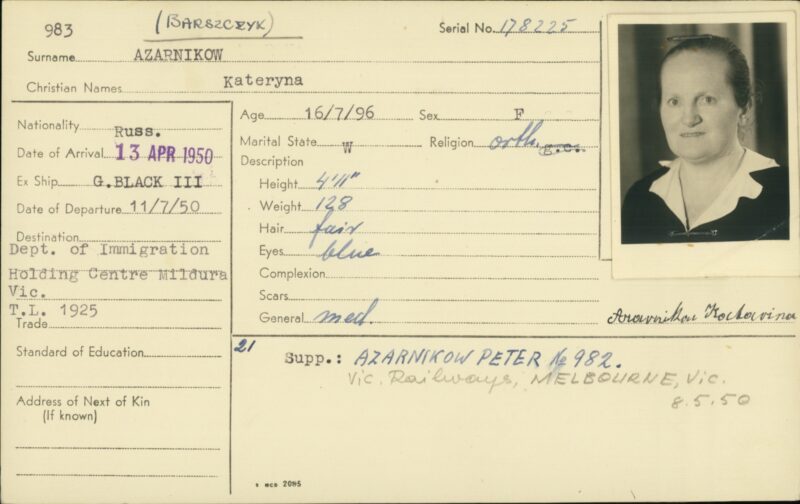 983
(BARSZCZYK)
Serial No. 178225
Surname AZARNIKOW
Christian Names Kateryna
Nationality Russ.
Date of Arrival 13 APR 1950
Ex Ship G.BLACK III
Date of Departure 11/7/50
Destination
Dept. of Immigration
Holding Centre Mildura
Vic.
T.L. 1925
Trade
Standard of Education
Address of Next of Kin
(If known)
Age 16/7/96 Sex F
Marital State W Religion orth. g.c.
Description
Height 4'11"
Weight 128
Hair fair
Eyes blue
Complexion
Scars
General med.
21
Supp.: AZARNIKOW PETER No 982.
Vic. Railways, MELBOURNE, Vic.
8.5.50